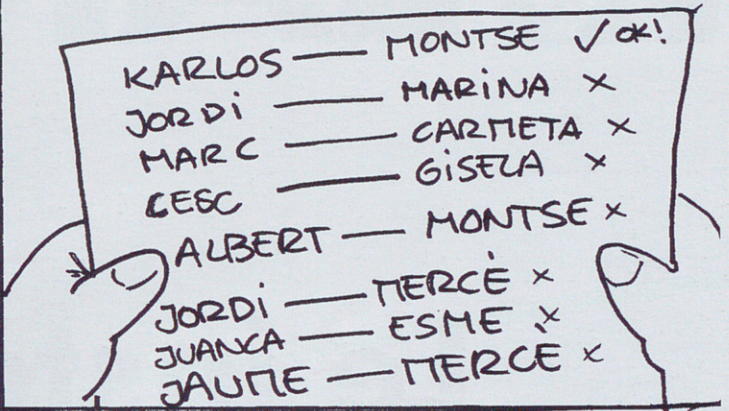 KARLOS — MONTSE ✓ OK!
JORDI — MARINA ×
MARC — CARMETA ×
CESC — GISELA ×
ALBERT — MONTSE ×
JORDI — MERCÈ ×
JUANCA — ESME ×
JAUME — MERCE ×